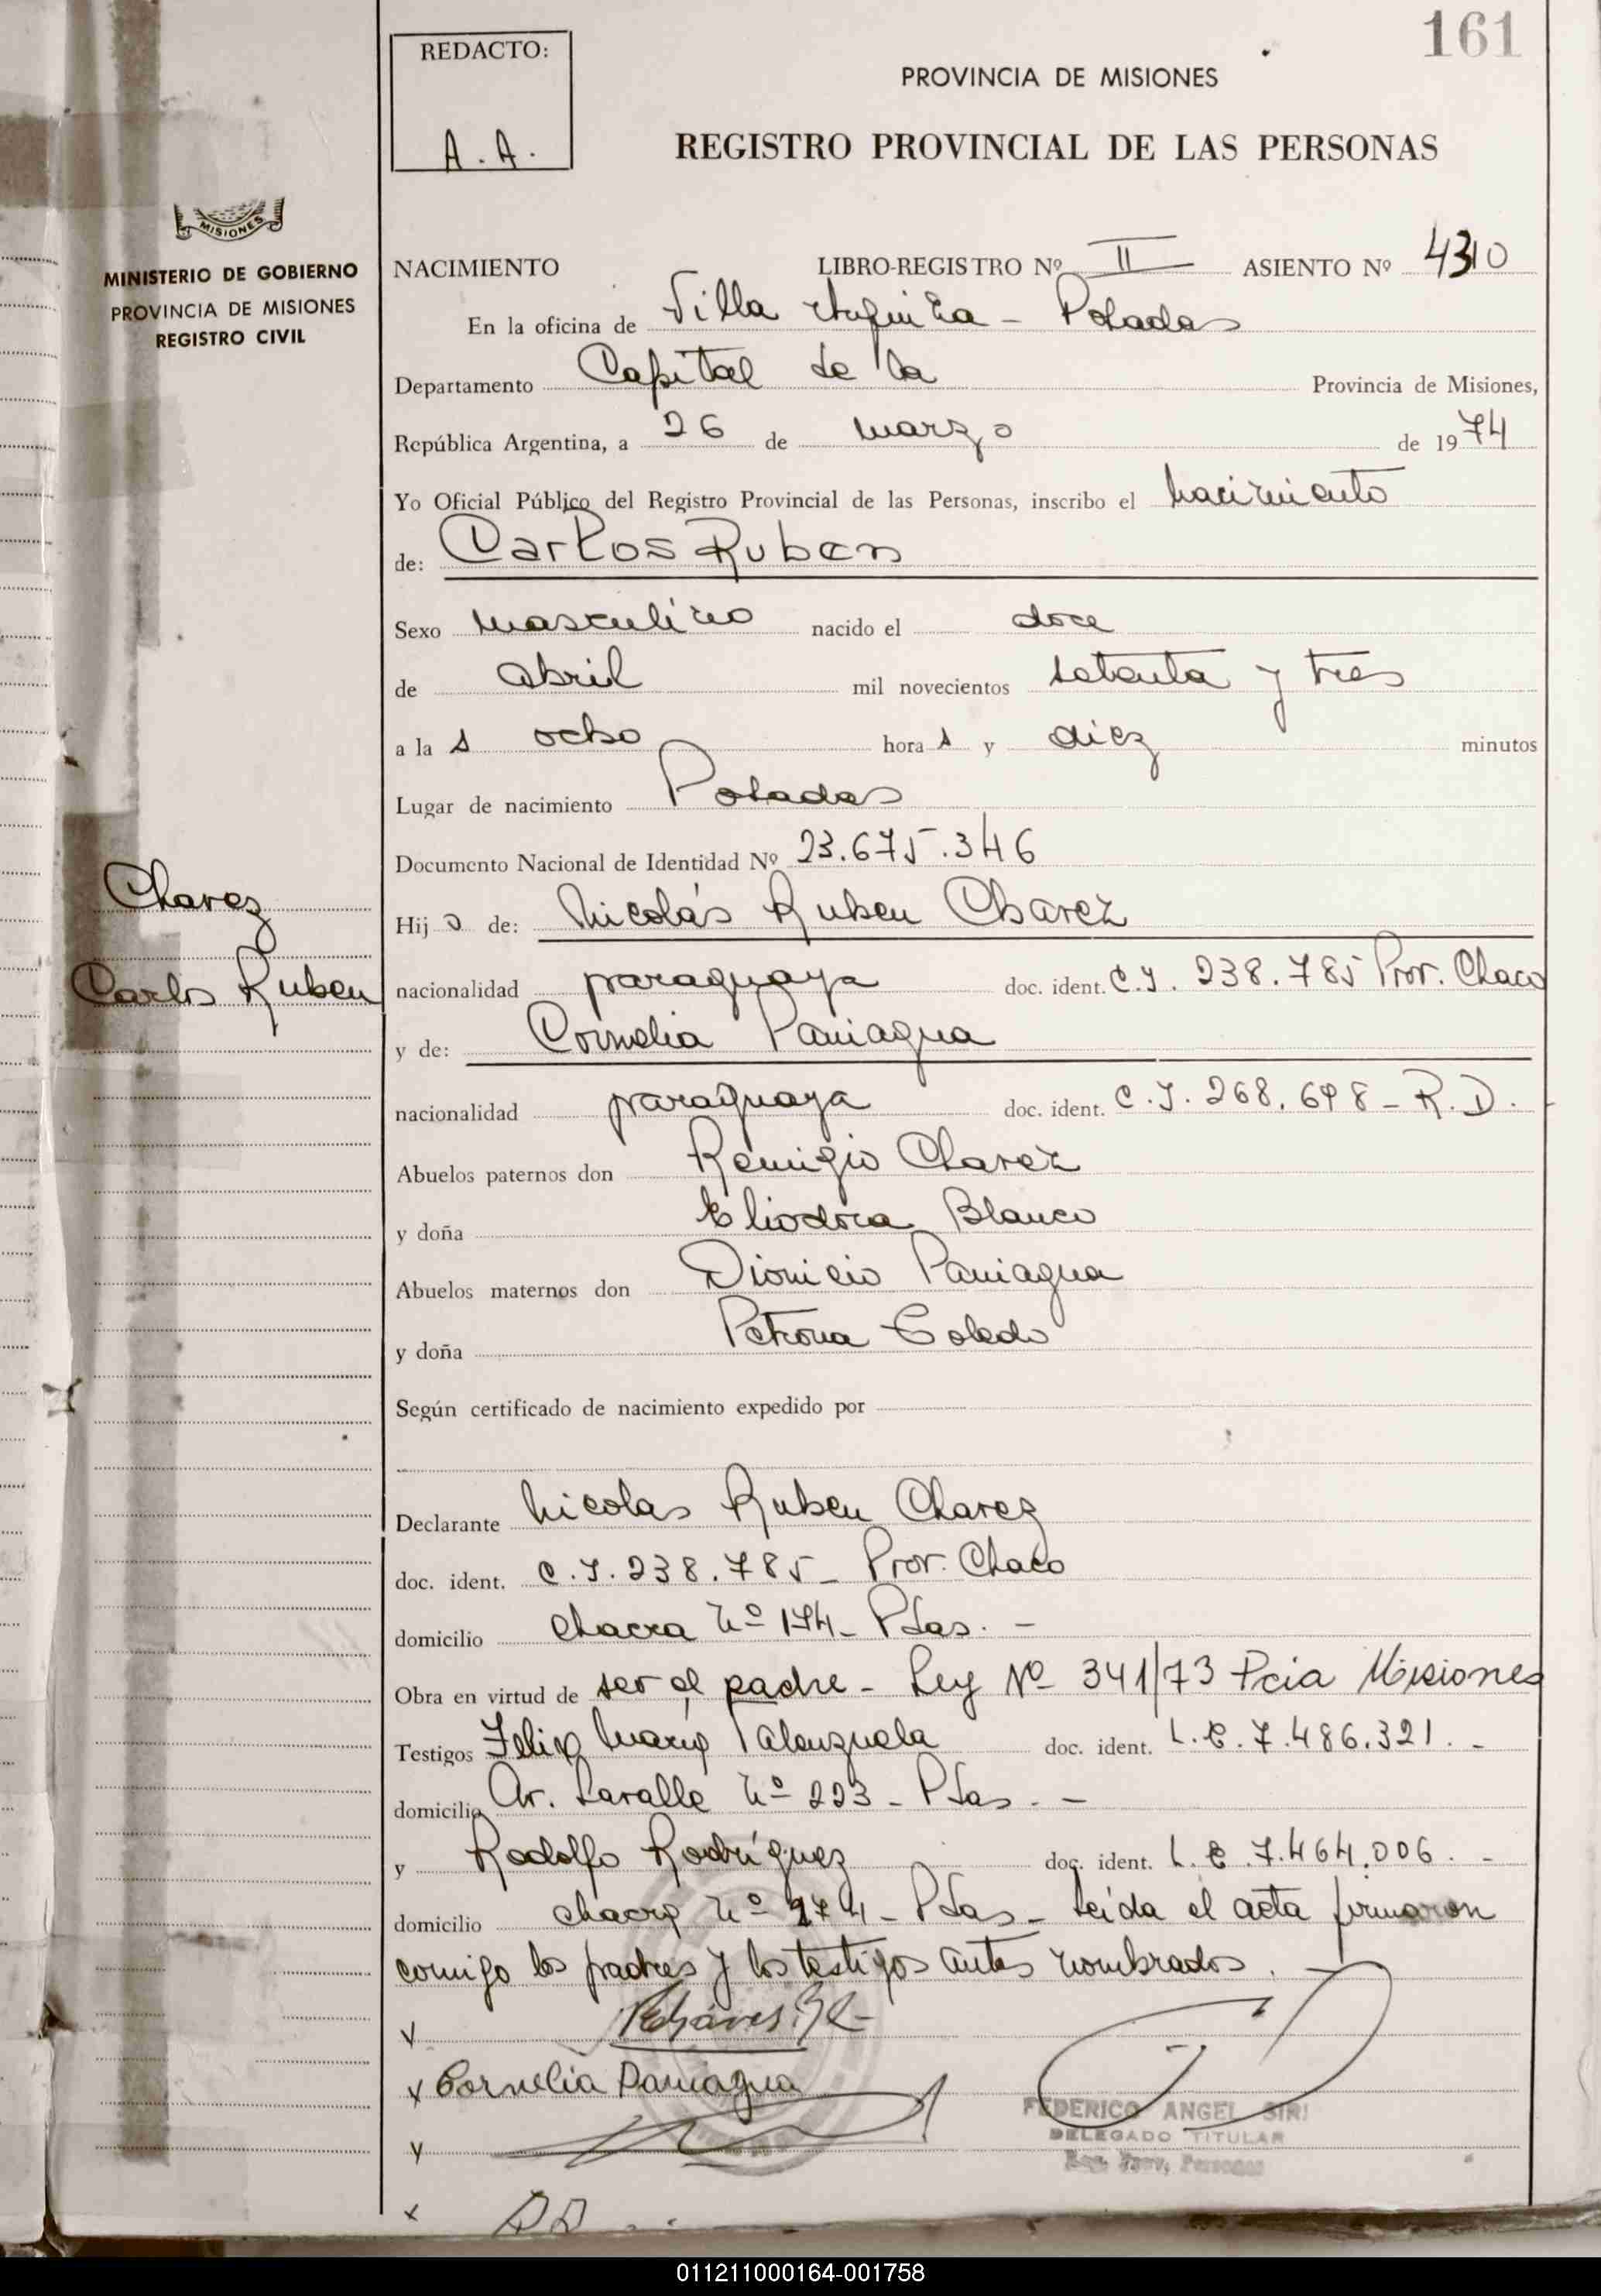 161
REDACTO:
A. A.
PROVINCIA DE MISIONES
REGISTRO PROVINCIAL DE LAS PERSONAS
MISIONES
MINISTERIO DE GOBIERNO
PROVINCIA DE MISIONES
REGISTRO CIVIL
NACIMIENTO LIBRO-REGISTRO Nº II ASIENTO Nº 4310
En la oficina de Villa Urquiza - Posadas
Departamento Capital de la Provincia de Misiones,
República Argentina, a 26 de marzo de 1974
Yo Oficial Público del Registro Provincial de las Personas, inscribo el nacimiento
de: Carlos Ruben
Sexo masculino nacido el doce
de abril mil novecientos setenta y tres
a la s ocho hora s y diez minutos
Lugar de nacimiento Posadas
Documento Nacional de Identidad Nº 23.675.346
Chavez
Carlos Ruben
Hij o de: Nicolás Ruben Chavez
nacionalidad paraguaya doc. ident. C.I. 238.785 Prov. Chaco
y de: Cornelia Paniagua
nacionalidad paraguaya doc. ident. C.I. 268.698 - R.D.
Abuelos paternos don Remigio Chavez
y doña Eliodora Blanco
Abuelos maternos don Dionicio Paniagua
y doña Petrona Toledo
Según certificado de nacimiento expedido por
Declarante Nicolas Ruben Chavez
doc. ident. C.I. 238.785 - Prov. Chaco
domicilio Chacra Nº 174 - Pdas. -
Obra en virtud de ser el padre - Ley Nº 341/73 Pcia Misiones
Testigos Felix Mario Valenzuela doc. ident. L.E. 7.486.321. -
domicilio Av. Lavalle Nº 223 - Pdas. -
y Rodolfo Rodríguez doc. ident. L.E. 7.464.006. -
domicilio chacra Nº 174 - Pdas - Leída el acta firmaron
comigo los padres y los testigos antes nombrados.
Cornelia Paniagua
FEDERICO ANGEL SIRI
DELEGADO TITULAR
Reg. Prov. Personas
011211000164-001758